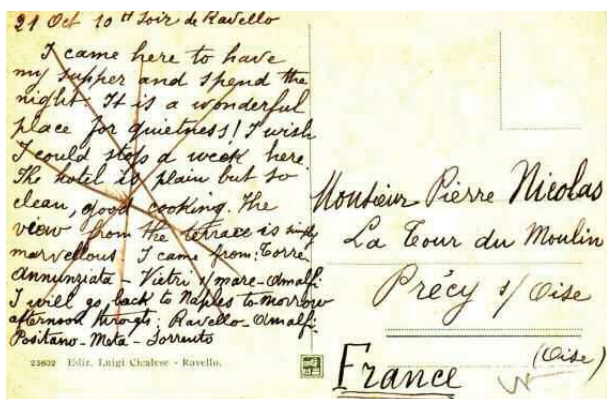 21 Oct 10 H Soir de Ravello
I came here to have
my supper and spend the
night. It is a wonderful
place for quietness! I wish
I could stop a week here
The hotel is plain but so
clean, good cooking. The
view from the terrace is simply
marvellous I came from: Torre
Annunziata - Vietri s/mare - Amalfi
I will go back to Naples to-morrow
afternoon throgts: Ravello - Amalfi
Positano - Meta - Sorrento
23602 Ediz. Luigi Cicalese - Ravello.
Monsieur Pierre Nicolas
La Tour du Moulin
Précy s/ Oise
(Oise)
France